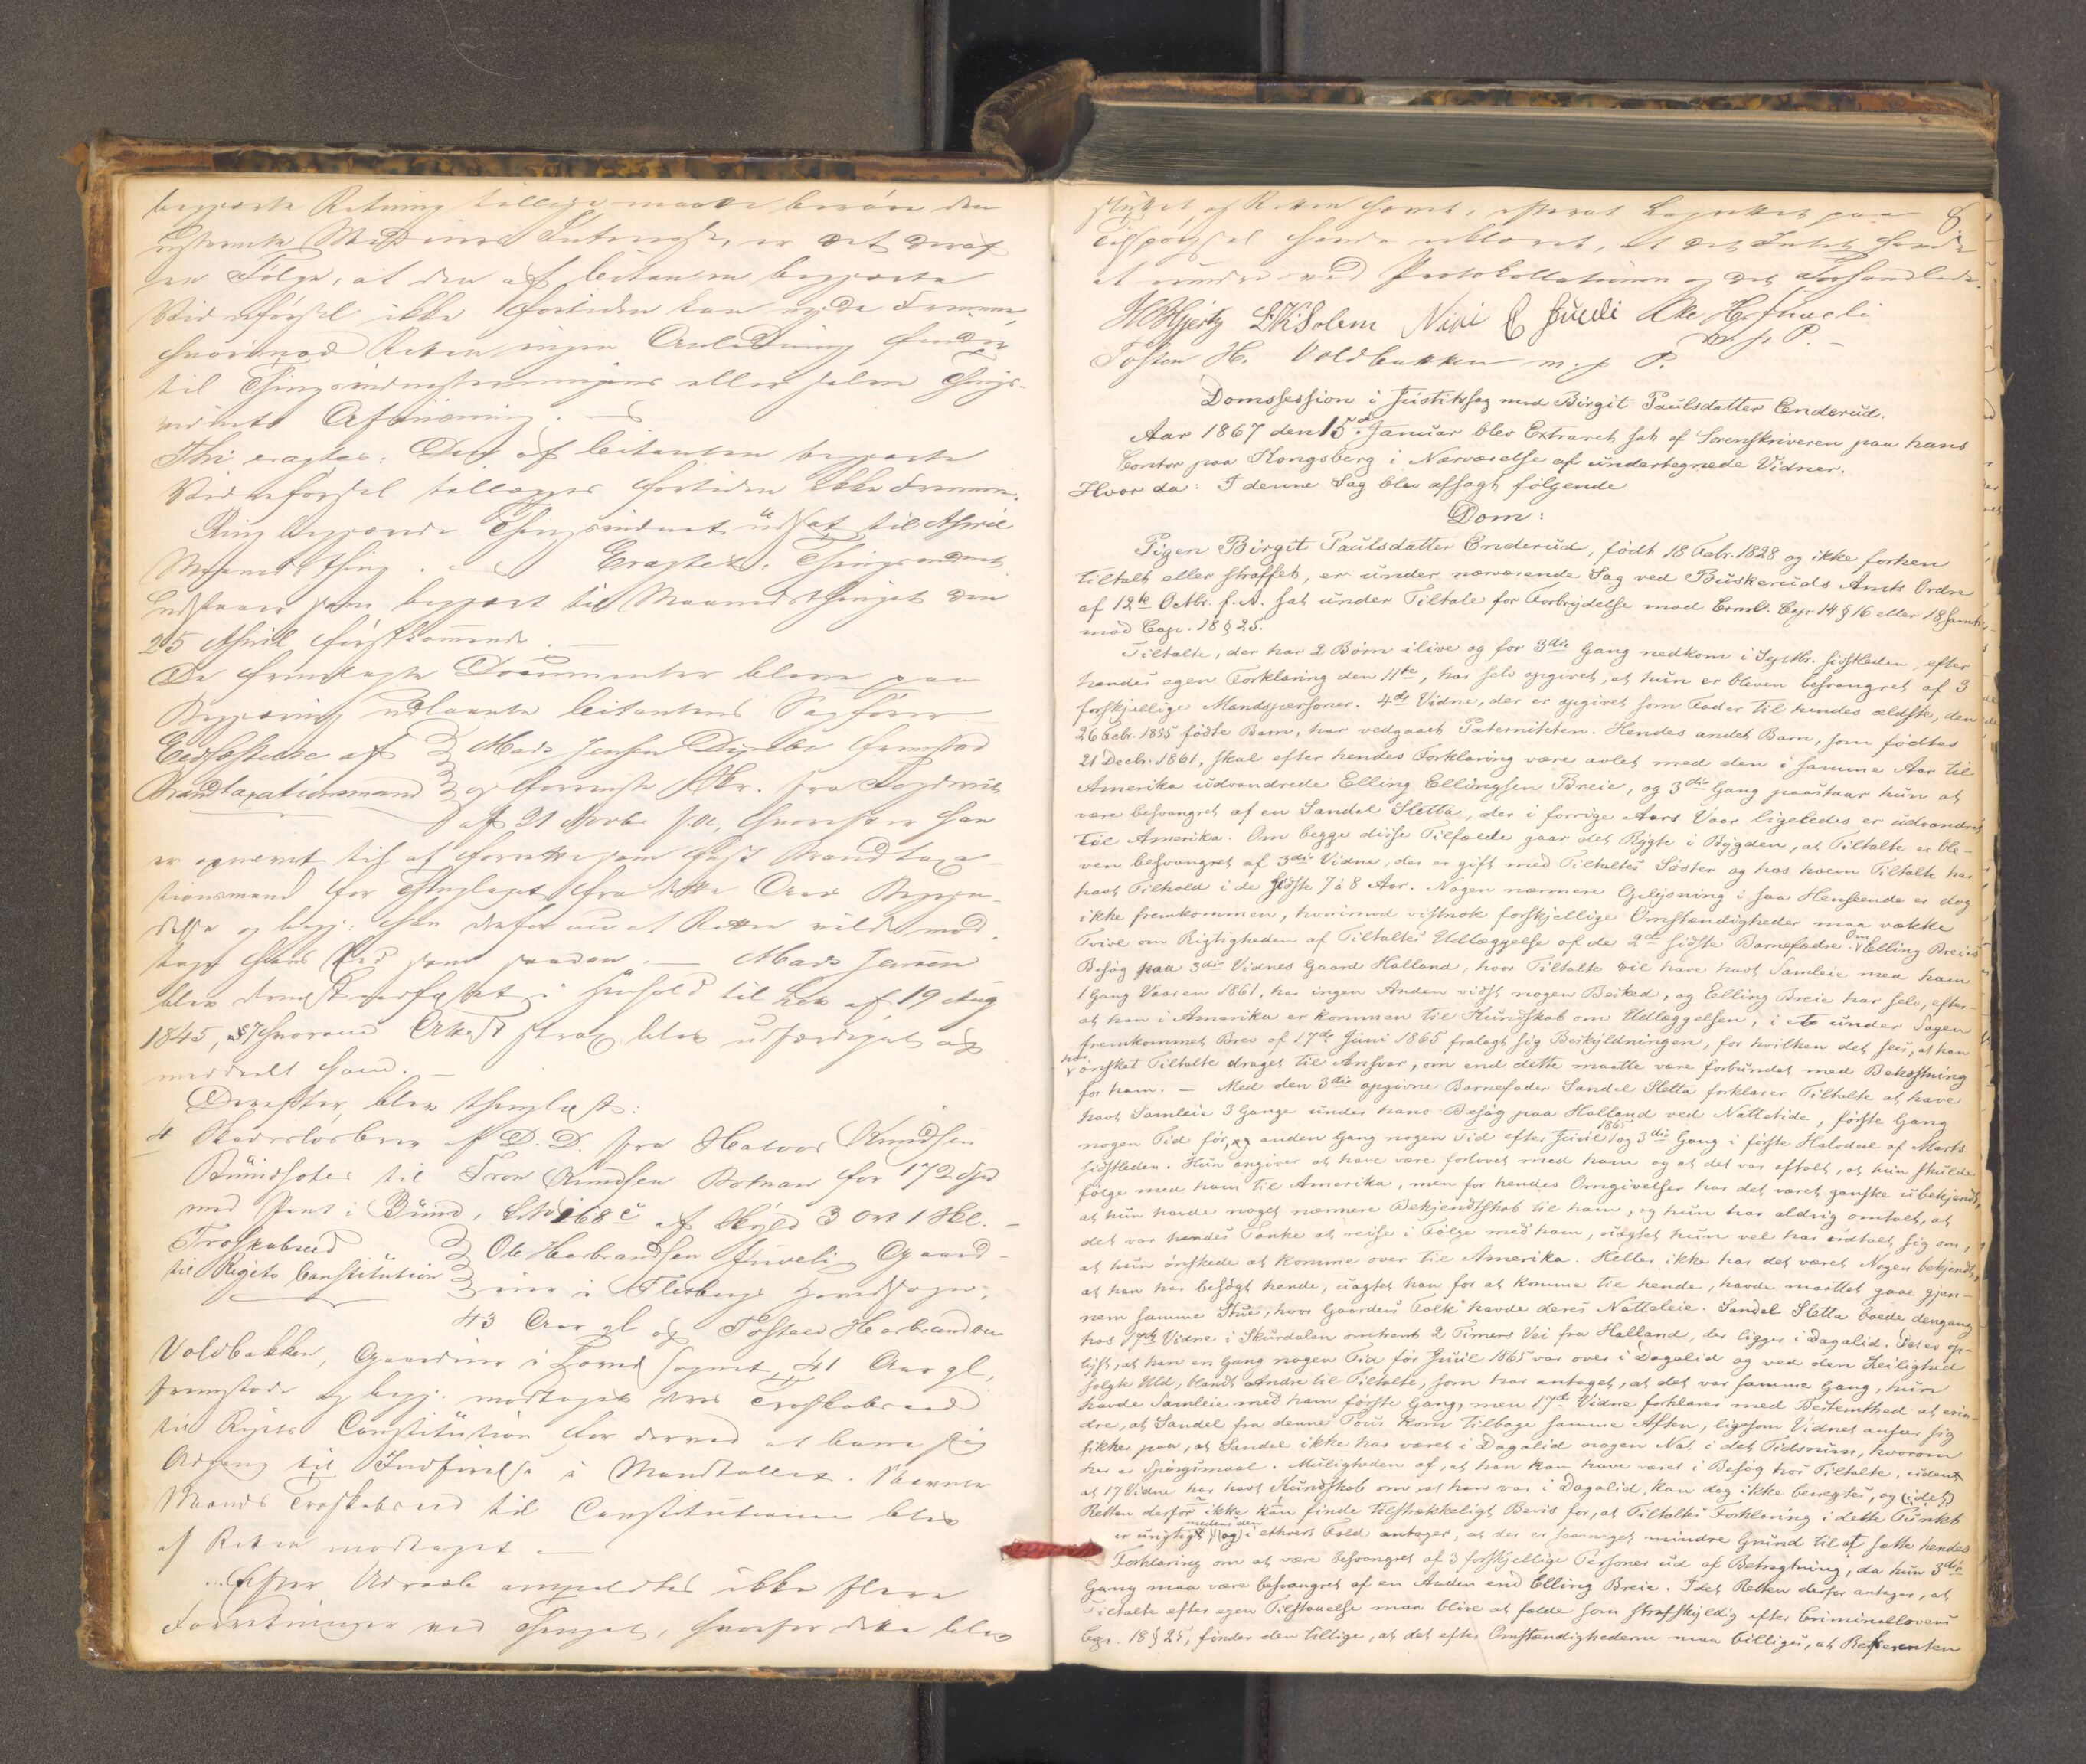 begjærte Retning tillige maatte berøre den
en Følge, at den af Citanten begjærte
Vidneførsel ikke fortiden kan nyde Fremme,
hvorimod Retten ingen Anledning finder
til Thingsvidnestevningens eller selve Things-
vidnets Afviisning.
Thi eragtes: Den af Citanten begjærte
Vidneførsel tillægges fortiden ikke Fremme.
Ring begjærede Thingsvidnet udsat til April
Maanedsthing. Eragtet: Thingsvidnet
udstaaer som begjært til Maanedsthinget den
25 April førstkommende.
De fremlagte Documenter bleve paa
Begjæring udlaante Citantens Sagfører.
Eedfæstelse af Mads Jensen fremstod
Brandtaxationsmand og foreviste Skr. fra Fogderiet
af 21 Novbr f.A., hvorefter han
er opnævnt til at forrette som fast Brandtaxa-
tionsmand for Thinglaget fra dette Aars Begyn-
delse og begj. han derfor nu at Retten vilde mod-
tage hans Eed som saadan. — Mads Jensen
blev dernæst eedfæstet i Henhold til Lov af 19 Aug
1845, § 7 hvorom Attest strax blev udfærdiget og
meddeelt ham. —
Derefter blev thinglæst:
4 Skadesløsbrev f D. D. fra Halvor Knudsen
til Tron Knudsen for 172 Spd
med Pant i Bünd, LNo 168 c af Skyld 3 Ort 1 Skl. —
Troskabseed Ole Herbrandsen Juveli Gaard-
til Rigets Constitution mand i Flesberg Hovedsogn,
43 Aar gl. og Tosten Herbrandsen
Voldbakken, Gaardmand i Lyngdal Sognet, 41 Aar gl.,
fremstode og begj. modtaget deres Troskabseed
til Rigets Constitution for derved at bane sig
Adgang til Indførelse i Mandtallet. Bemeldte
Mænds Troskabseed til Constitutionen blev
af Retten modtaget. —
Efter Udraab anmeldtes ikke flere
Forretninger ved Thinget, hvorfor dette blev
8
sluttet af Retten hævet, efterat Lagrettet paa
Tilspørgsel havde erklæret, at det Intet havde
at erindre ved Protokollationen og det Forhandlede.
Hjertz EKSolem Juveli Ole H. Juveli
m. p. P. —
Tosten H. Voldbakken m. p. P.
Domssession i Justitssag mod Birgit Paulsdatter Enderud.
Aar 1867 den 15de Januar blev Extraret sat af Sorenskriveren paa hans
Contor paa Kongsberg i Nærværelse af undertegnede Vidner.
Hvor da: I denne Sag blev afsagt følgende
Dom:
Pigen Birgit Paulsdatter Enderud, født 18 Febr. 1828 og ikke forhen
tiltalt eller straffet, er under nærværende Sag ved Buskeruds Amts Ordre
af 12te Octbr. f. A. sat under Tiltale for Forbrydelse mod Crml. Cap. 14 § 16 eller 18 samt
mod Cap. 18 § 25.
Tiltalte, der har 2 Børn ilive og for 3die Gang nedkom i Septbr. sidstleden, efter
hendes egen Forklaring den 11te, har selv opgivet, at hun er bleven besvangret af 3
forskjellige Mandspersoner. 4de Vidne, der er opgivet som Fader til hendes ældste, den
26 Febr. 1855 fødte Barn, har vedgaaet Paterniteten. Hendes andet Barn, som fødtes
21 Decbr. 1861, skal efter hendes Forklaring være avlet med den i samme Aar til
Amerika udvandrede Elling Ellingsen Breie, og 3die Gang paastaar hun at
være besvangret af en Sandel Sletta, der i forrige Aars Vaar ligeledes er udvandret
til Amerika. Om begge disse Tilfælde gaar det Rygte i Bygden, at Tiltalte er ble-
ven besvangret af 3die Vidne, der er gift med Tiltaltes Søster og hos hvem Tiltalte har
havt Tilhold i de sidste 7 à 8 Aar. Nogen nærmere Oplysning i saa Henseende er dog
ikke fremkommen, hvorimod vistnok forskjellige Omstændigheder maa vække
Tvivl om Rigtigheden af Tiltaltes Udlæggelse af de 2de sidste Barnefædre. Om Elling Breies
Besøg paa 3die Vidnes Gaard Halland, hvor Tiltalte vil have havt Samleie med ham
1 Gang Vaaren 1861, har ingen Anden vidst nogen Besked, og Elling Breie har selv, efter-
at han i Amerika er kommen til Kundskab om Udlæggelsen, i et under Sagen
fremkommet Brev af 17de Juni 1865 fralagt sig Beskyldningen, for hvilken det sees, at han
har ønsket Tiltalte draget til Ansvar, om end dette maatte være forbundet med Bekostning
for ham. — Med den 3die opgivne Barnefader Sandel Sletta forklarer Tiltalte at have
havt Samleie 3 Gange under hans Besøg paa Halland ved Nattetide, første Gang
nogen Tid før, og anden Gang nogen Tid efter Juul 1865 og 3die Gang i første Halvdeel af Marts
sidstleden. Hun angiver at have være forlovet med ham og at det var aftalt, at hun skulde
følge med ham til Amerika, men for hendes Omgivelser har det været ganske ubekjendt,
at hun havde noget nærmere Bekjendtskab til ham, og hun har aldrig omtalt, at
det var hendes Tanke at reise i Følge med ham, uagtet hun vel har udtalt sig om,
at hun ønskede at komme over til Amerika. Heller ikke har det været Nogen bekjendt,
at han har besøgt hende, uagtet han for at komme til hende, havde maattet gaae gjen-
nem samme Stue, hvor Gaardens Folk havde deres Natteleie. Sandel Sletta boede dengang
hos 17de Vidne i Skurdalen omtrent 2 Timers Vei fra Halland, der ligger i Dagalid. Det er op-
lyst, at han en Gang nogen Tid før Juul 1865 var over i Dagalid og ved den Leilighed
solgte Uld, blandt Andre til Tiltalte, som har antaget, at det var samme Gang, hun
havde Samleie med ham første Gang, men 17de Vidne forklarer med Bestemthed at erin-
dre, at Sandel fra denne Tour kom tilbage samme Aften, ligesom Vidnet anser sig
sikker paa, at Sandel ikke har været i Dagalid nogen Nat i det Tidsrum, hvorom
her er Spørgsmaal. Muligheden af, at han kan have været i Besøg hos Tiltalte, uden
at 17 Vidne har havt Kundskab om at han var i Dagalid, kan dog ikke benegtes, og (idet)
Retten derfor ikke kan finde tilstrækkeligt Bevis for, at Tiltaltes Forklaring i dette Punkt
er urigtigt, medens den (og) i ethvert Fald antager, at der er saameget mindre Grund til at sætte hendes
Forklaring om at være besvangret af 3 forskjellige Personer ud af Betragtning, da hun 3die
Gang maa være besvangret af en Anden end Elling Breie. Idet Retten derfor antager, at
Tiltalte efter egen Tilstaaelse maa blive at fælde som strafskyldig efter Criminallovens
Cap. 18 § 25, finder den tillige, at det efter Omstændighederne maa billiges, at Referenten